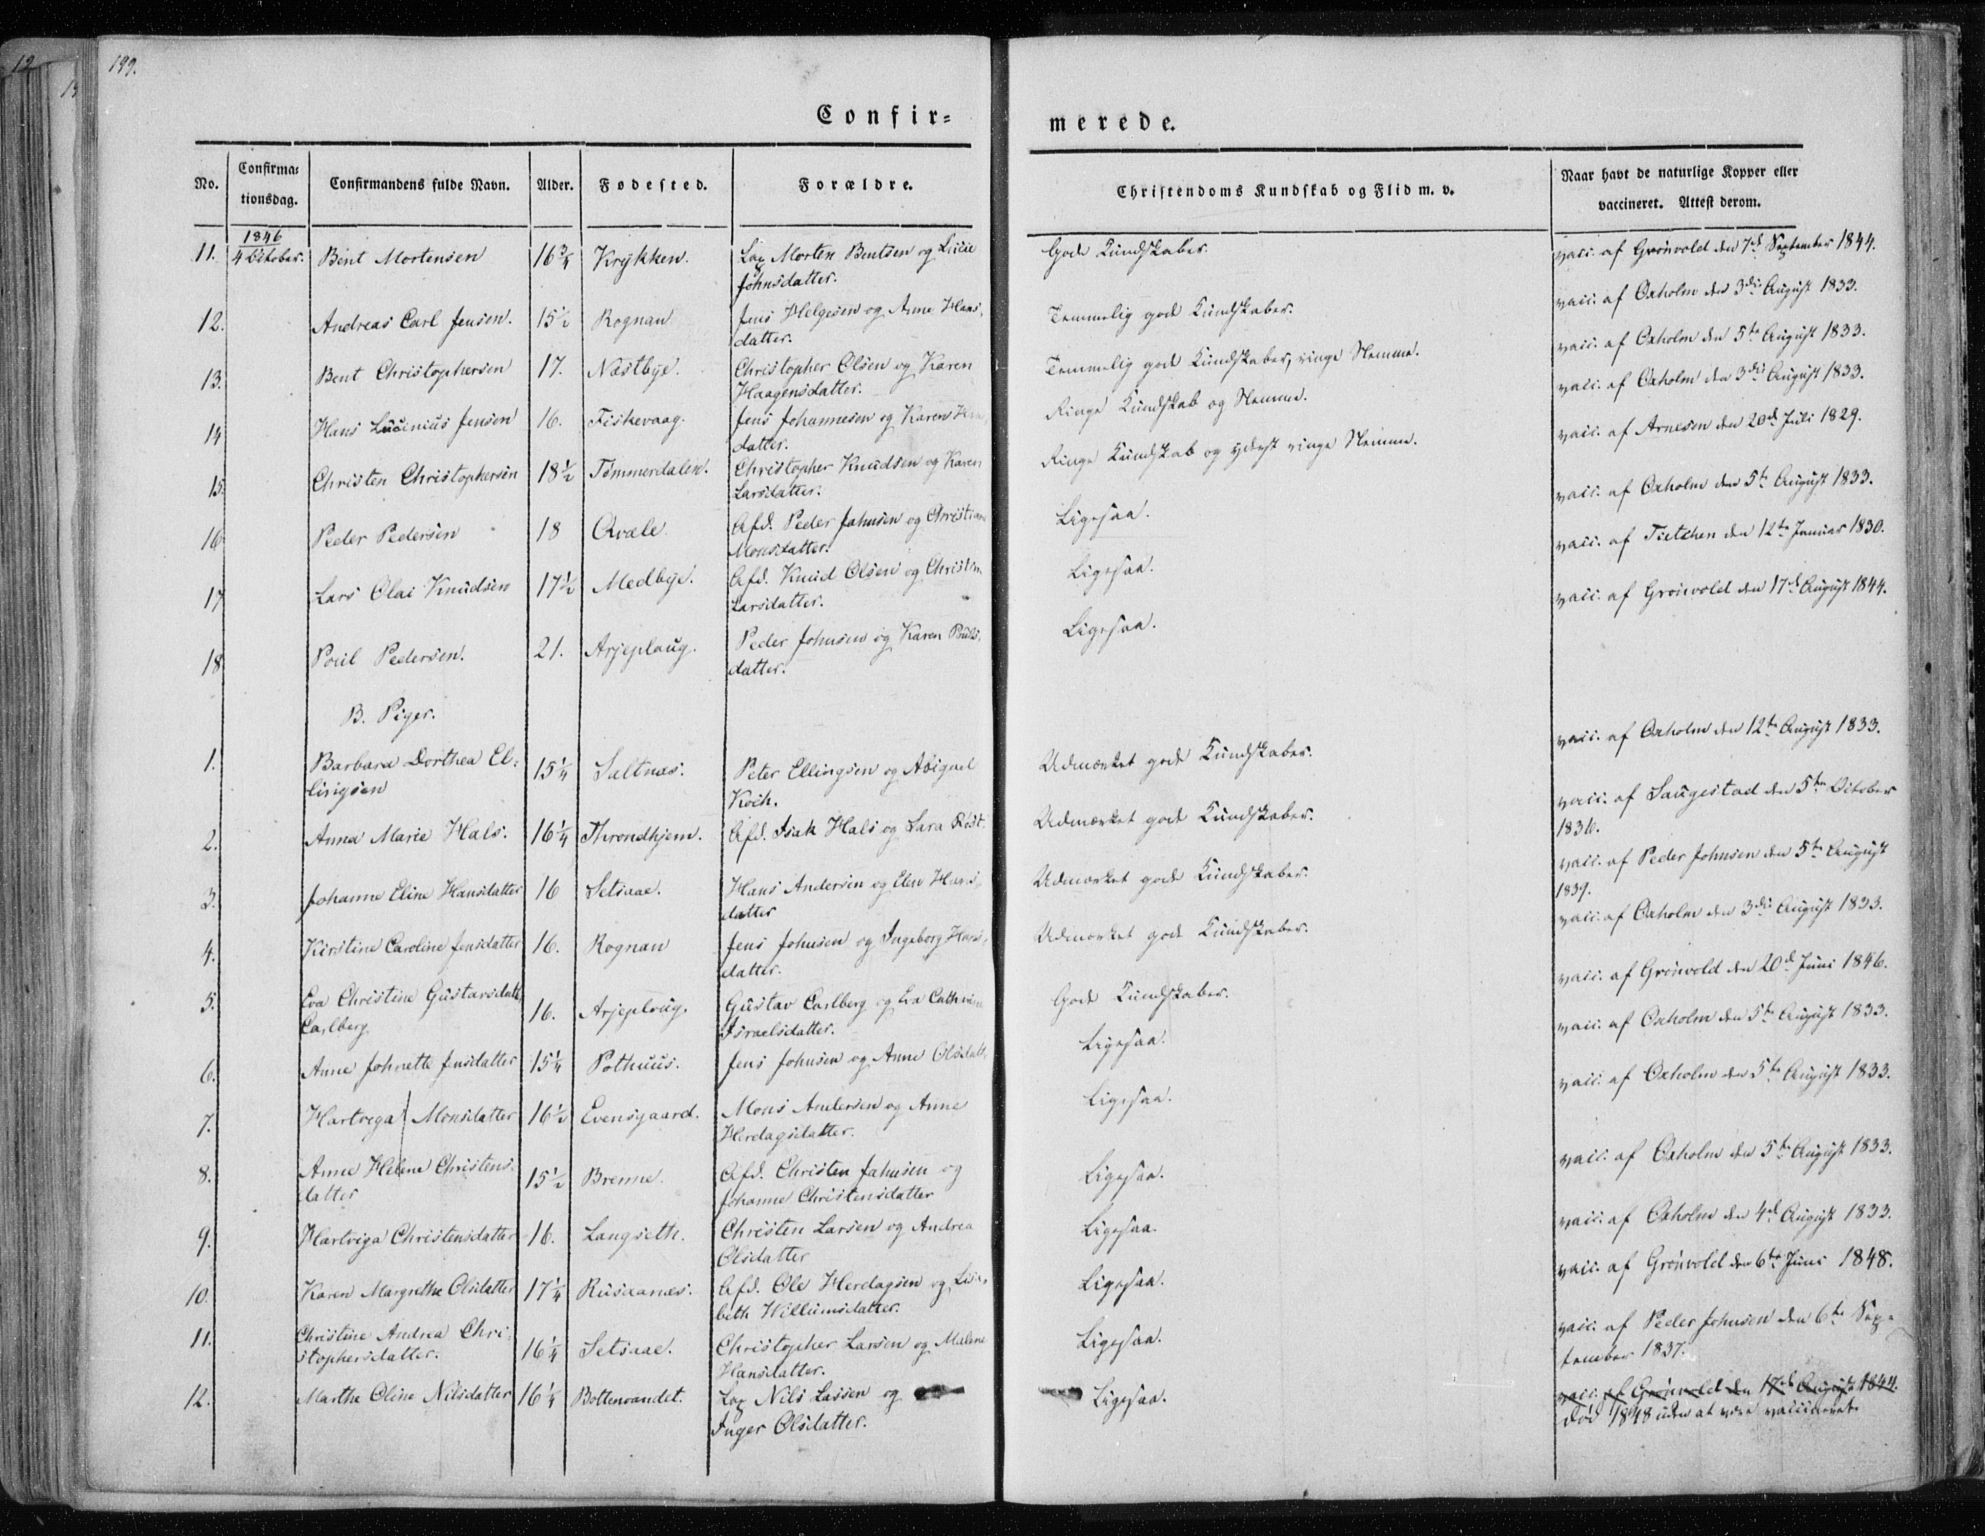 199.
Confir=
merede.
No.
Confirma=
tionsdag.
Confirmandens fulde Navn.
Alder.
Fødested.
Forældre.
Christendoms Kundskab og Flid m. v.
Naar havt de naturlige Kopper eller
vaccineret. Attest derom.
1846
11. 4 October. Bent Mortensen 16¾ Krykken. Lap Morten Bentsen og Lucie
Johnsdatter.
Gode Kundskaber.
vacc. af Grönvold den 7de September 1844.
12. Andreas Carl Jensen. 15½ Rognan Jens Helgesen og Anne Hans-
datter.
Temmelig gode Kundskaber.
vacc. af Oxholm den 3die August 1833.
13. Bent Christophersen 17. Næstbye. Christopher Olsen og Karen
Haagensdatter.
Temmelig gode Kundskaber, ringe Nemme.
vacc. af Oxholm den 5te August 1833.
14 Hans Lucinius Jensen 16. Fiskevaag. Jens Johannesen og Karen
datter.
Ringe Kundskab og Nemme.
vacc. af Oxholm den 3die August 1833.
15. Christen Christophersen 18½ Tömmerdalen. Christopher Knudsen og Karen
Larsdatter.
Ringe Kundskab og yderst ringe Nemme.
vacc. af Arnesen den 20de Juli 1829.
16 Peder Pedersen 18 Qvale Afd. Peder Jahnsen og Christiana
Monsdatter.
Ligesaa.
vacc. af Oxholm den 5te August 1833.
17 Lars Olai Knudsen 17½ Medbye. Afd. Knud Olsen og Christen
Larsdatter.
Ligesaa.
vacc. af Tietchen den 12te Januar 1830.
18 Poul Pedersen. 21. Arjeplaug. Peder Johnsen og Karen Pouls-
datter.
Ligesaa.
vacc. af Grönvold den 17de August 1844.
B. Piger.
1. Barbara Dorthea El-
lingsen 15¼ Saltnæs. Peter Ellingsen og Abigael
Koch.
Udmærket gode Kundskaber.
vacc. af Oxholm den 12te August 1833.
2. Anna Marie Hals. 16¼ Throndhjem. Afd. Isak Hals og Sara
Udmærket gode Kundskaber.
vacc. af Saugestad den 5te October
1836.
3. Johanne Eline Hansdatter 16 Setsaae. Hans Andersen og Elen Hans-
datter
Udmærket gode Kundskaber.
vacc. af Peder Johnsen den 5te August
1839.
4. Kirstine Caroline Jensdatter 16. Rognan Jens Johnsen og Ingeborg Hans-
datter.
Udmærket gode Kundskaber.
vacc. af Oxholm den 3die August 1833.
5. Eva Christine Gustavsdatt.
Carlberg. 16. Arjeplaug. Gustav Carlberg og Eva Cathrine
Israelsdatter.
Gode Kundskaber.
vacc. af Grönvold den 20de Juni 1846.
6. Anne Johnette Jensdatter 15¼ Pothuus. Jens Johnsen og Anne Olsdatt.
Ligesaa.
vacc. af Oxholm den 5te August 1833.
7. Hartviga Monsdatter 16½ Evensgaard. Mons Andersen og Anne
Herdagsdatter.
Ligesaa.
vacc. af Oxholm den 5te August 1833.
8. Anne Helene Christens-
datter 15½ Brenne. Afd. Christen Jahnsen og
Johanne Christensdatter
Ligesaa.
vacc. af Oxholm den 5te August 1833.
9. Hartviga Christensdatter 16. Langseth. Christen Larsen og Andrea
Olsdatter
Ligesaa.
vacc. af Oxholm den 4de August 1833.
10. Karen Margrethe Olsdatter 17¼ Rusaanæs. Afd. Ole Herdagsen og Lisa-
beth Willumsdatter.
Ligesaa.
vacc. af Grönvold den 6te Juni 1848.
11. Christine Andrea Chri-
stophersdatter. 16¼ Setsaae. Christopher Larsen og Malene
Hansdatter.
Ligesaa.
vacc. af Peder Johnsen den 6te Sep-
tember 1837.
12. Marthe Oline Nilsdatter 16¼ Bottenvandet. Lap Nils Lassen og
Inger Olsdatter.
Ligesaa.
vacc. af Grönvold den 17de August 1844.
död 1848 uden at være vaccineret.